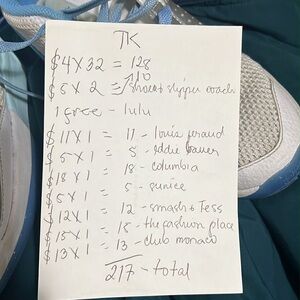 TK
$4 X 32 = 128
$5 X 2 = 10 / shoes & slipper coach
1 free - lulu
$11 X 1 = 11 - louis feraud
$5 X 1 = 5 - eddie bauer
$18 X 1 = 18 - columbia
$5 X 1 = 5 - eunice
$12 X 1 = 12 - smash & Tess
$15 X 1 = 15 - the fashion place
$13 X 1 = 13 - club monaco
217 - total